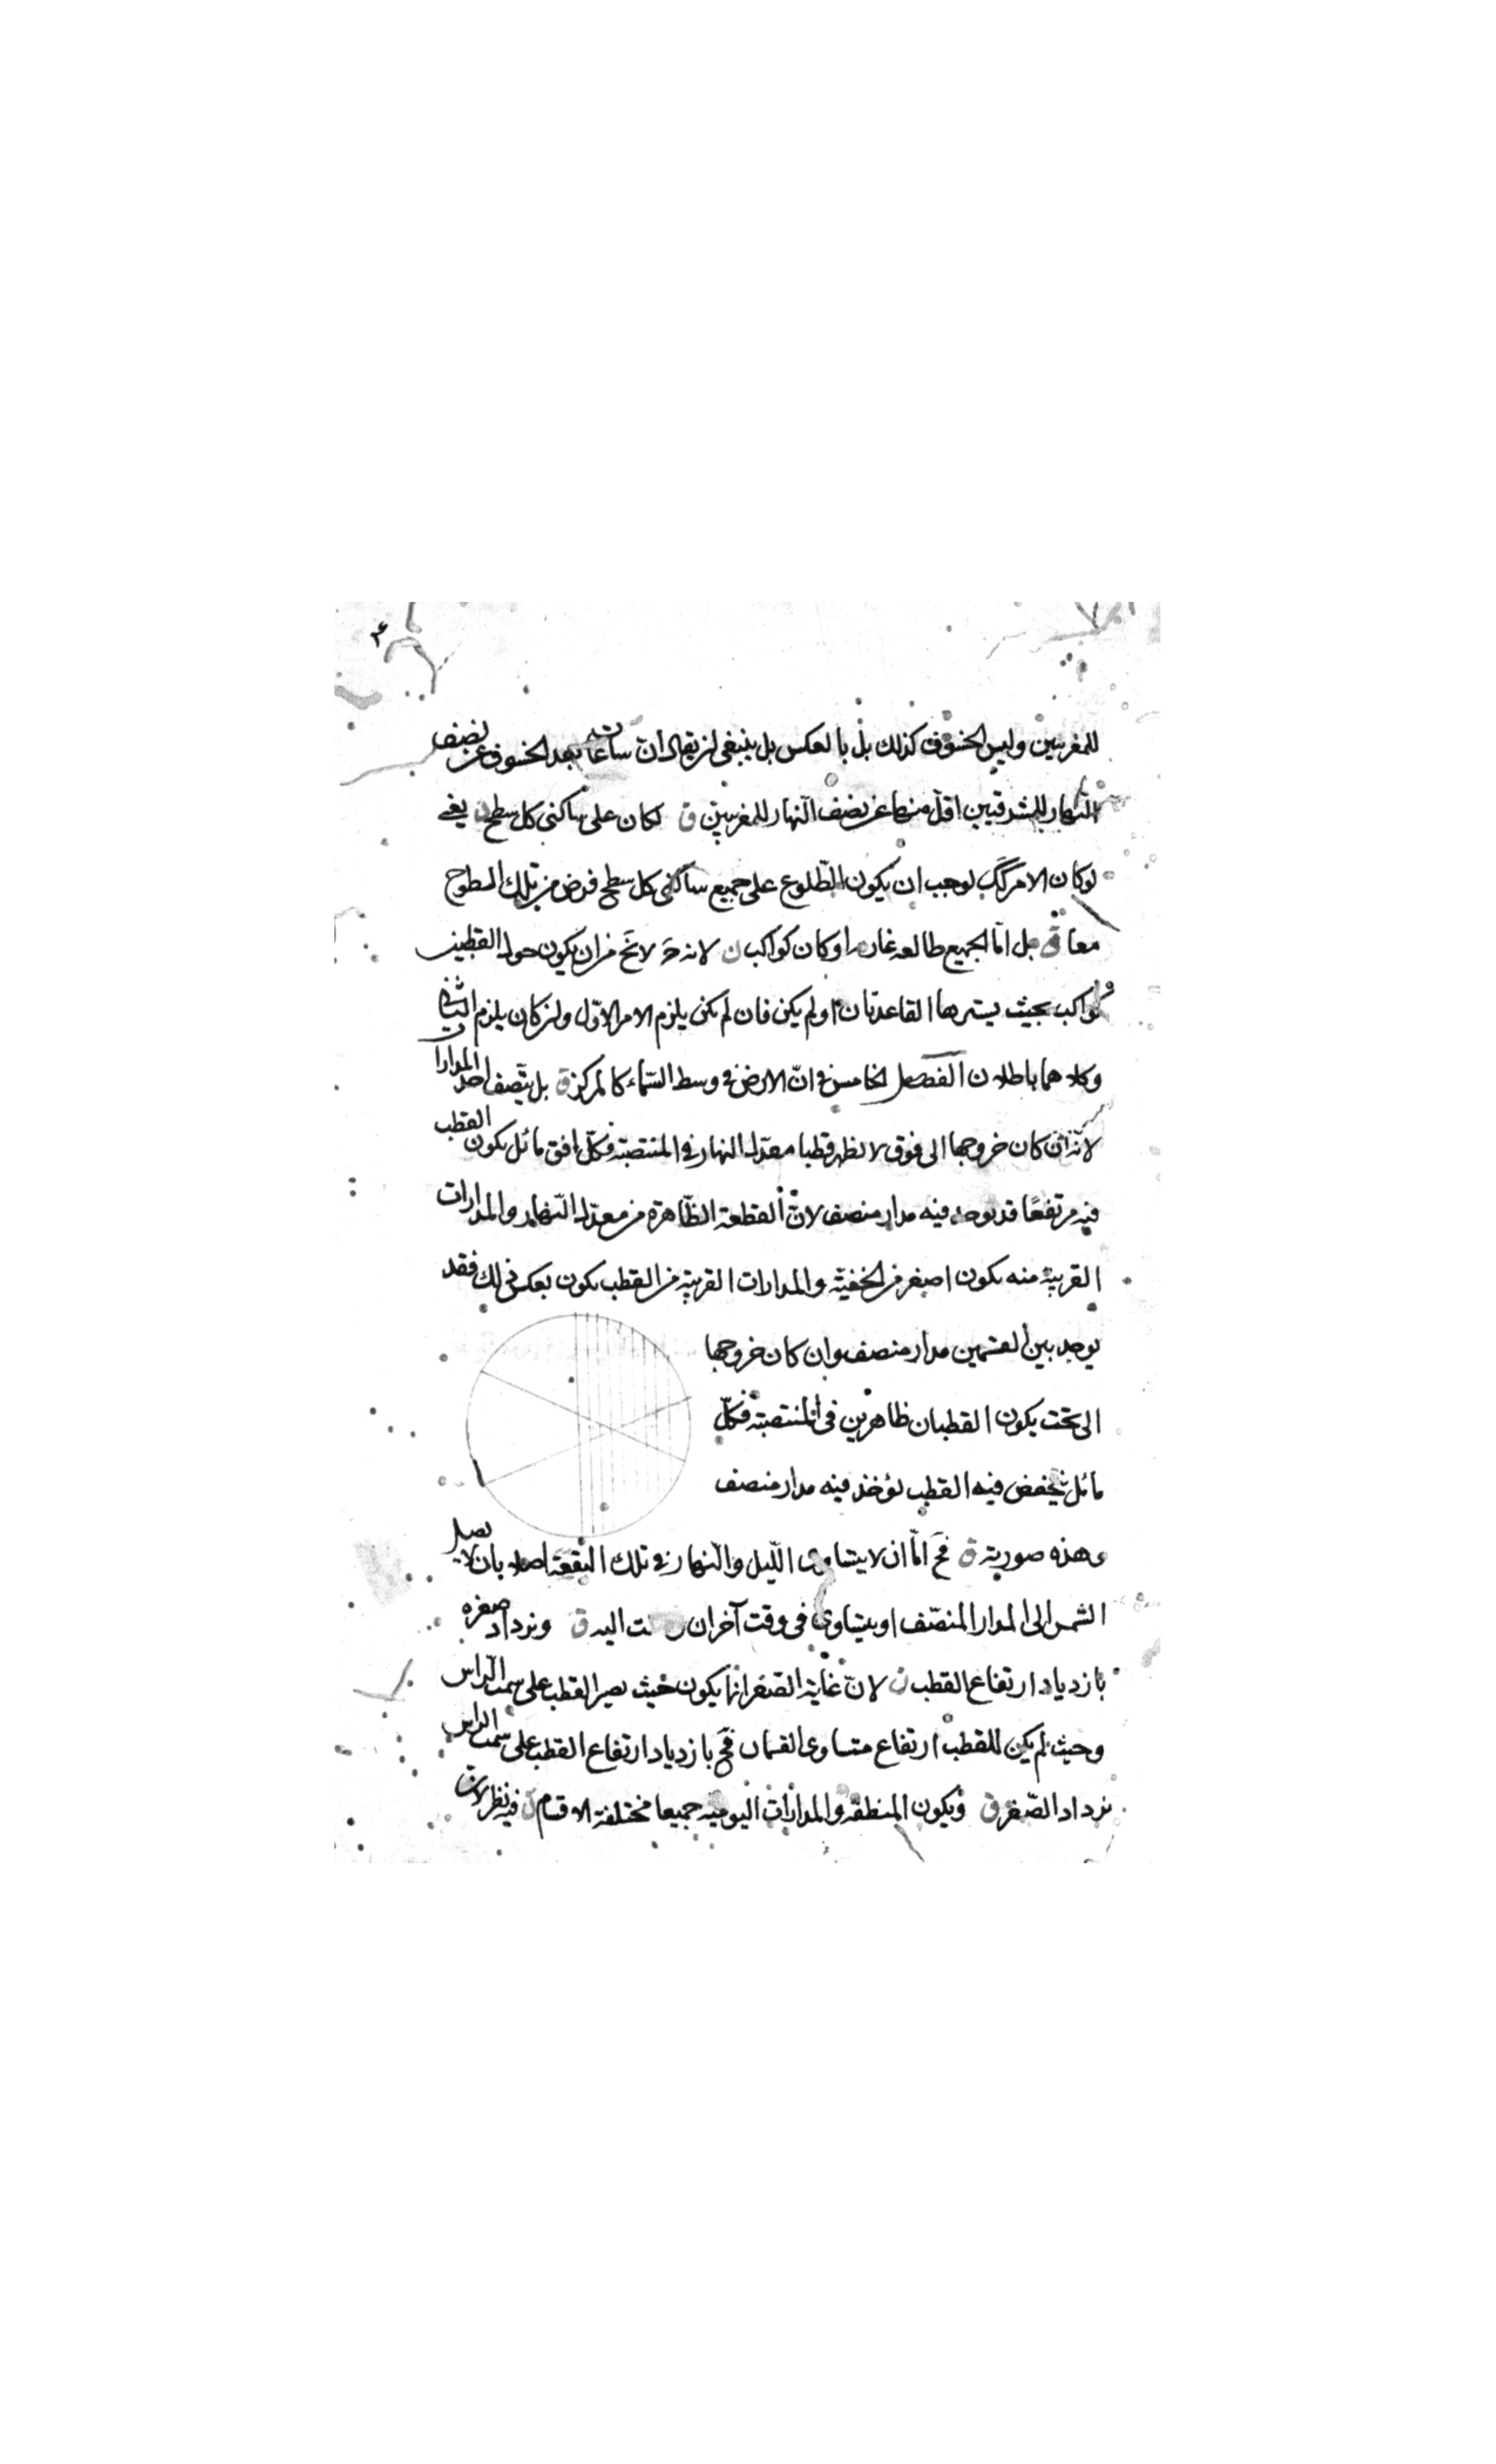 للمغربيين وليس الخسوف كذلك بل بالعكس بل ينبغي ان يقال ان ساعات بعد الخسوف عن نصف
النهار للمشرقيين اقل منها عن نصف النهار للمغربيين ق لكان على ساكني كل سطح ن يعني
لو كان الامر كك لوجب ان يكون الطلوع على جميع ساكني كل سطح فرض من تلك السطوح
معا ق بل اما الجميع طالعه غاربه او كان كواكب ن لانه ح لا يخ من ان يكون حول القطبين
كواكب بحيث يسترها القاعدتان او لم يكن فان لم يكن يلزم الامر الاول وان كان يلزم الثاني
وكلاهما باطلان الفصل الخامس في ان الارض في وسط السماء كالمركز ق بل ينصف احد المدارات
لانه ان كان خروجها الى فوق لا يظهر قطبا معدل النهار في المنتصبة فكل افق مائل يكون القطب
فيه مرتفعا قد يوجد فيه مدار منصف لان القطعة الظاهرة من معدل النهار والمدارات
القريبة منه يكون اصغر من الخفية والمدارات القريبة من القطب يكون بعكس ذلك فقد
يوجد بين القسمين مدار منصف وان كان خروجها
الى تحت يكون القطبان ظاهرين في المنتصبة فكل
مائل ينخفض فيه القطب يؤخذ فيه مدار منصف
وهذه صورته ق فح اما ان لا يتساوى الليل والنهار في تلك البقعة اصلا بان لا يصل
الشمس الى المدار المنصف او يتساوى في وقت آخر ان اليه ق ويزداد صغره
بازدياد ارتفاع القطب ن لان غاية الصغر انما يكون حيث يصير القطب على سمت الراس
وحيث لم يكن للقطب ارتفاع متساوى القسمان فح بازدياد ارتفاع القطب على سمت الراس
يزداد الصغر ق ويكون المنطقة والمدارات اليومية جميعا مختلفة الاقسام ن فيه نظر لان